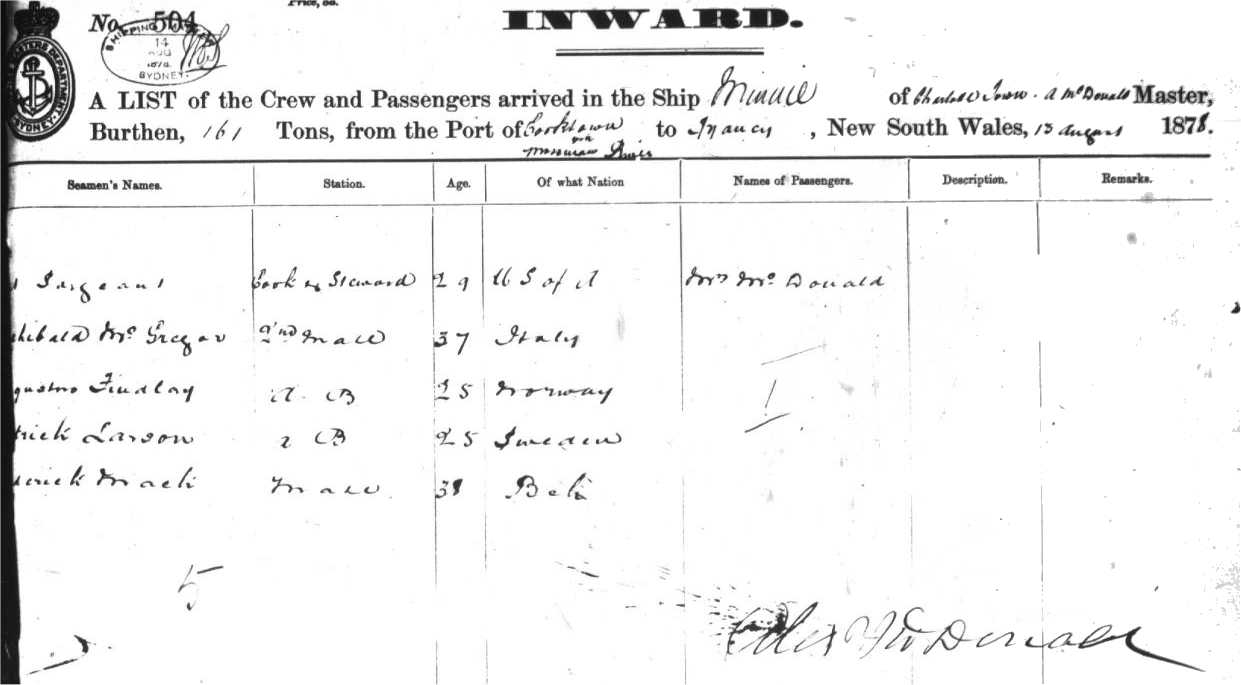 Price, &c.
No. 504
INWARD.
SHIPPING SYDNEY
14
A LIST of the Crew and Passengers arrived in the Ship Minnie of Charlotte Town. A McDonald Master,
Burthen, 161 Tons, from the Port of Cooktown to , New South Wales, 13 August 1878.
River
Seamen's Names. Station. Age. Of what Nation Names of Passengers. Description. Remarks.
Sargeant Cook & Steward 29 U S of A Mrs McDonald
hibald McGregor 2nd Mate 37 Italy
gustus Findlay A B 25 Norway
I
rick Larson A B 25 Sweden
derick Mate 38
5
Alex McDonald